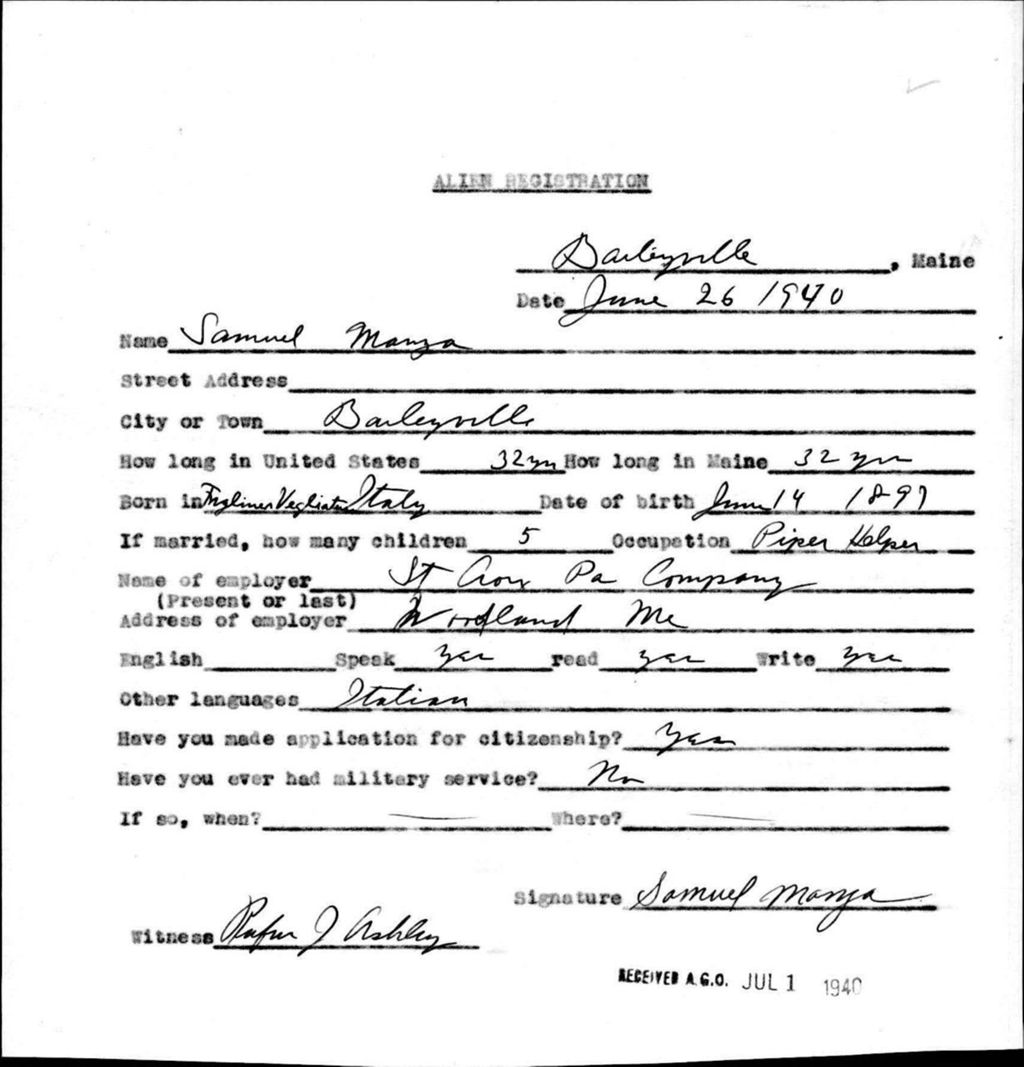 ALIEN REGISTRATION
Baileyville, Maine
Date June 26 1940
Name Samuel Manza
Street Address
City or Town Baileyville
How long in United States 32 yrs How long in Maine 32 yrs
Born in Italy Date of birth June 14 1897
If married, how many children 5 Occupation Piper Helper
Name of employer St Croix Pa Company
(Present or last)
Address of employer Woodland Me
English Speak yes read yes Write yes
Other languages Italian
Have you made application for citizenship? Yes
Have you ever had military service? No
If so, when? Where?
Signature Samuel Manza
Witness Rufus J Ashley
RECEIVED A.G.O. JUL 1 1940